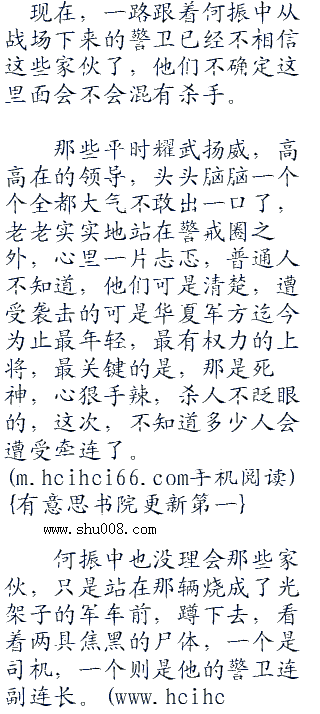 现在，一路跟着何振中从
战场下来的警卫已经不相信
这些家伙了，他们不确定这
里面会不会混有杀手。
那些平时耀武扬威，高
高在的领导，头头脑脑一个
个全都大气不敢出一口了，
老老实实地站在警戒圈之
外，心里一片忐忑，普通人
不知道，他们可是清楚，遭
受袭击的可是华夏军方迄今
为止最年轻，最有权力的上
将，最关键的是，那是死
神，心狠手辣，杀人不眨眼
的，这次，不知道多少人会
遭受牵连了。
(m.hcihci66.com手机阅读)
{有意思书院更新第一}
www.shu008.com
何振中也没理会那些家
伙，只是站在那辆烧成了光
架子的军车前，蹲下去，看
着两具焦黑的尸体，一个是
司机，一个则是他的警卫连
副连长。(www.hcihc